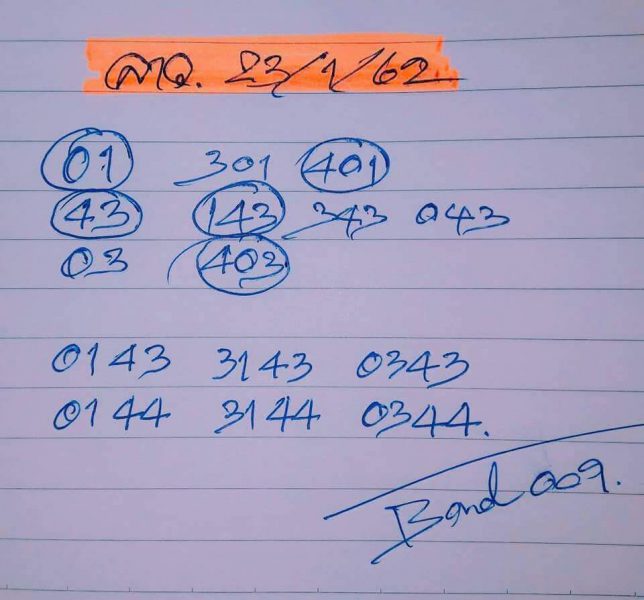 ลาว. 23/1/62
01 301 401
43 143 343 043
03 403
0143 3143 0343
0144 3144 0344.
Bond 009.